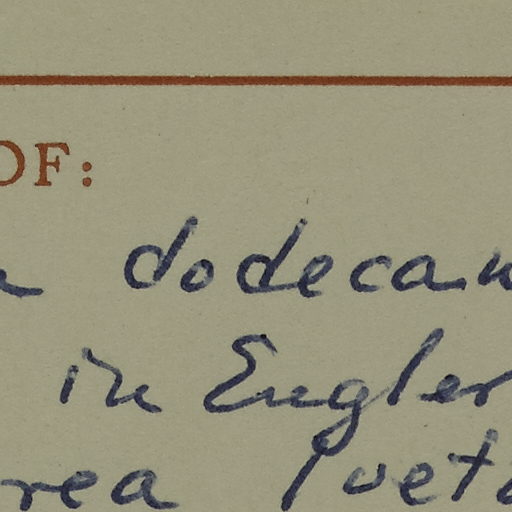 OF:
a dodecan
in Engler
rea